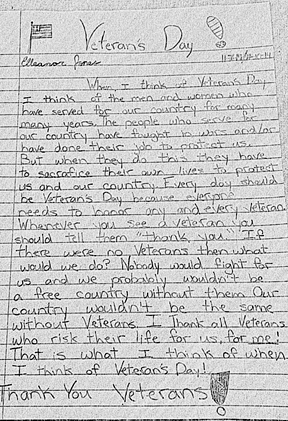 Veteran's Day
Eleanor Jones
When I think of Veteran's Day
I think of the men and women who
have served for our country for many
many years. The people who serve for
our country have fought in wars and/or
have done their job to protect us.
But when they do this they have
to sacrafice their own lives to protect
us and our country. Every day should
be Veteran's Day because
needs to honor any and every veteran.
Whenever you see a veteran you
should tell them "thank you." If
there were no Veterans then what
would we do? Nobody would fight for
us and we probably wouldn't be
a free country without them. Our
country wouldn't be the same
without Veterans. I Thank all Veterans
who risk their life for us, for me!
That is what I think of when
I think of Veteran's Day!
Thank You Veterans!